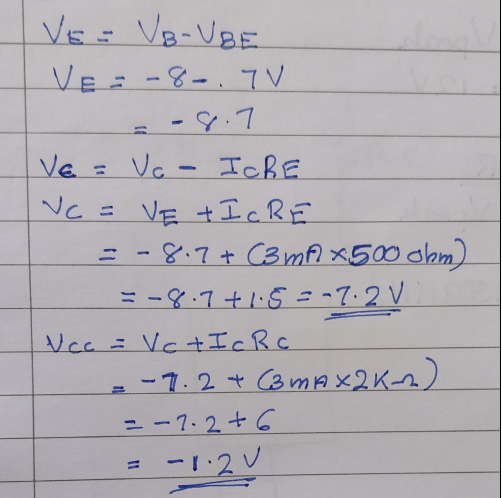 VE = VB-VBE
VE = -8-.7V
= -8.7
VE = VC - ICRE
VC = VE + ICRE
= -8.7 + (3mA×500 ohm)
= -8.7+1.5 = -7.2 V
VCC = VC + ICRC
= -7.2 + (3mA×2KΩ)
= -7.2+6
= -1.2V